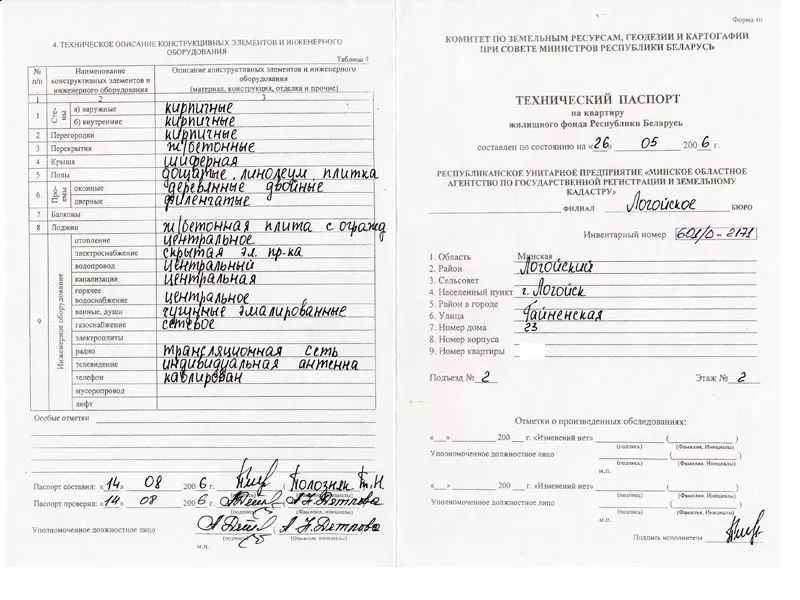 4. ТЕХНИЧЕСКОЕ ОПИСАНИЕ КОНСТРУКЦИВНЫХ ЭЛЕМЕНТОВ И ИНЖЕНЕРНОГО
ОБОРУДОВАНИЯ
Таблица 4
№ п/п Наименование конструктивных элементов и инженерного оборудования Описание конструктивных элементов и инженерного оборудования (материал, конструкция, отделка и прочие)
1 2 3
1 Стены а) наружные кирпичные
б) внутренние кирпичные
2 Перегородки кирпичные
3 Перекрытия ж/бетонные
4 Крыша шиферная
5 Полы дощатые, линолеум, плитка
6 Проемы оконные деревянные двойные
дверные филенчатые
7 Балконы
8 Лоджии ж/бетонная плита с огражд
9 Инженерное оборудование отопление центральное
электроснабжение скрытая эл. пр-ка
водопровод центральный
канализация центральная
горячее водоснабжение центральное
ванные, души чугунные эмалированные
газоснабжение сетевое
электроплиты
радио трансляционная сеть
телевидение индивидуальная антенна
телефон каблирован
мусоропровод
лифт
Особые отметки
Паспорт составил: «14» 08 2006 г. Полозняк Т.Н.
(подпись) (Фамилия, Инициалы)
Паспорт проверил: «14» 08 2006 г. А.Н. Дятлова
(подпись) (Фамилия, Инициалы)
Уполномоченное должностное лицо А.Н. Дятлова
(подпись) (Фамилия, Инициалы)
м.п.
Форма
КОМИТЕТ ПО ЗЕМЕЛЬНЫМ РЕСУРСАМ, ГЕОДЕЗИИ И КАРТОГАФИИ
ПРИ СОВЕТЕ МИНИСТРОВ РЕСПУБЛИКИ БЕЛАРУСЬ
ТЕХНИЧЕСКИЙ ПАСПОРТ
на квартиру
жилищного фонда Республики Беларусь
составлен по состоянию на «26» 05 2006 г.
РЕСПУБЛИКАНСКОЕ УНИТАРНОЕ ПРЕДПРИЯТИЕ «МИНСКОЕ ОБЛАСТНОЕ
АГЕНТСТВО ПО ГОСУДАРСТВЕННОЙ РЕГИСТРАЦИИ И ЗЕМЕЛЬНОМУ
КАДАСТРУ»
ФИЛИАЛ Логойское БЮРО
Инвентарный номер 601/D-2171
1. Область Минская
2. Район Логойский
3. Сельсовет
4. Населенный пункт г. Логойск
5. Район в городе
6. Улица Гайненская
7. Номер дома 23
8. Номер корпуса
9. Номер квартиры
Подъезд № 2 Этаж № 2
Отметки о произведенных обследованиях:
«__» 200 г. «Изменений нет» ( )
(подпись) (Фамилия, Инициалы)
Уполномоченное должностное лицо ( )
(подпись) (Фамилия, Инициалы)
м.п.
«__» 200 г. «Изменений нет» ( )
(подпись) (Фамилия, Инициалы)
Уполномоченное должностное лицо ( )
(подпись) (Фамилия, Инициалы)
м.п.
Подпись исполнителя